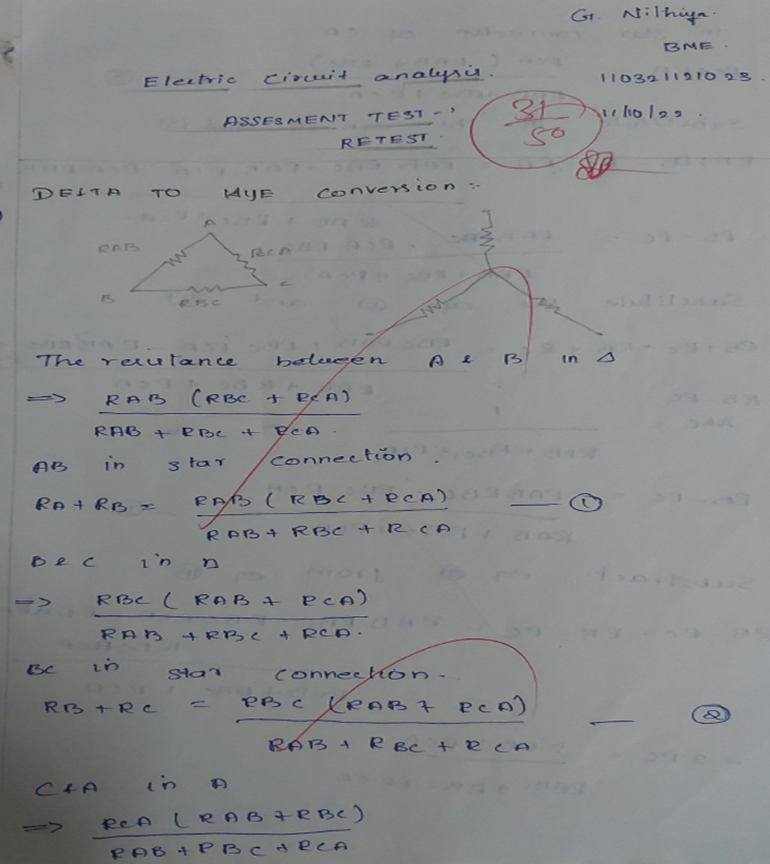 G. Nilthiya.
BME.
Electric Circuit analysis.
110321121023.
ASSESMENT TEST - '
31/50
11/10/22.
RETEST.
DELTA TO WYE Conversion :-
A
RAB
RCA
B
C
RBC
The resistance between A & B in Δ
=> RAB (RBC + RCA)
RAB + RBC + RCA.
AB in star connection.
RA + RB = RAB (RBC + RCA) — ①
RAB + RBC + RCA
B & C in Δ
=> RBC (RAB + RCA)
RAB + RBC + RCA.
BC in star connection.
RB + RC = RBC (RAB + RCA) — ②
RAB + RBC + RCA
C & A in Δ
=> RCA (RAB + RBC)
RAB + RBC + RCA